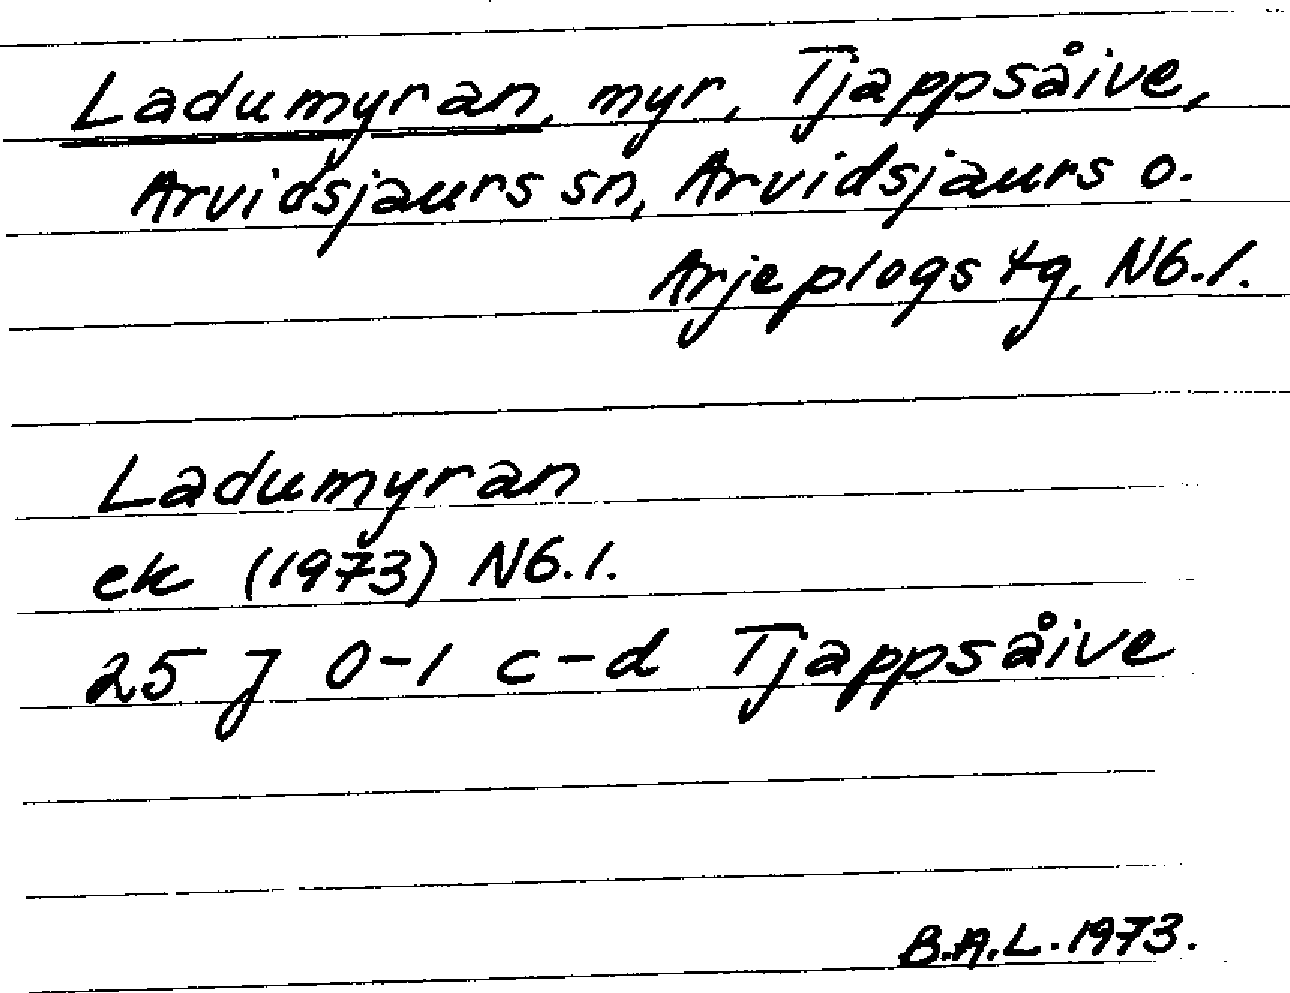 Ladumyran, myr, Tjappsåive,
Arvidsjaurs sn, Arvidsjaurs o.
Arjeplogs tg, N6.1.
Ladumyran
ek (1973) N6.1.
25 J 0-1 c-d Tjappsåive
B.A.L. 1973.